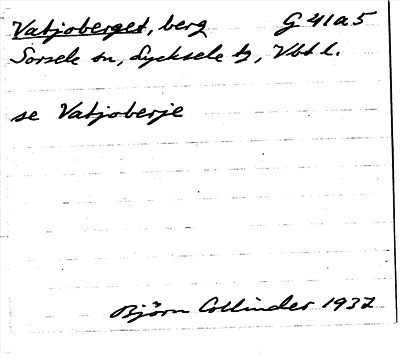 Vatjoberget, berg G 41a5
Sorsele sn, Lycksele tg, Vbtl.
se Vatjoberje
Björn Collinder 1937